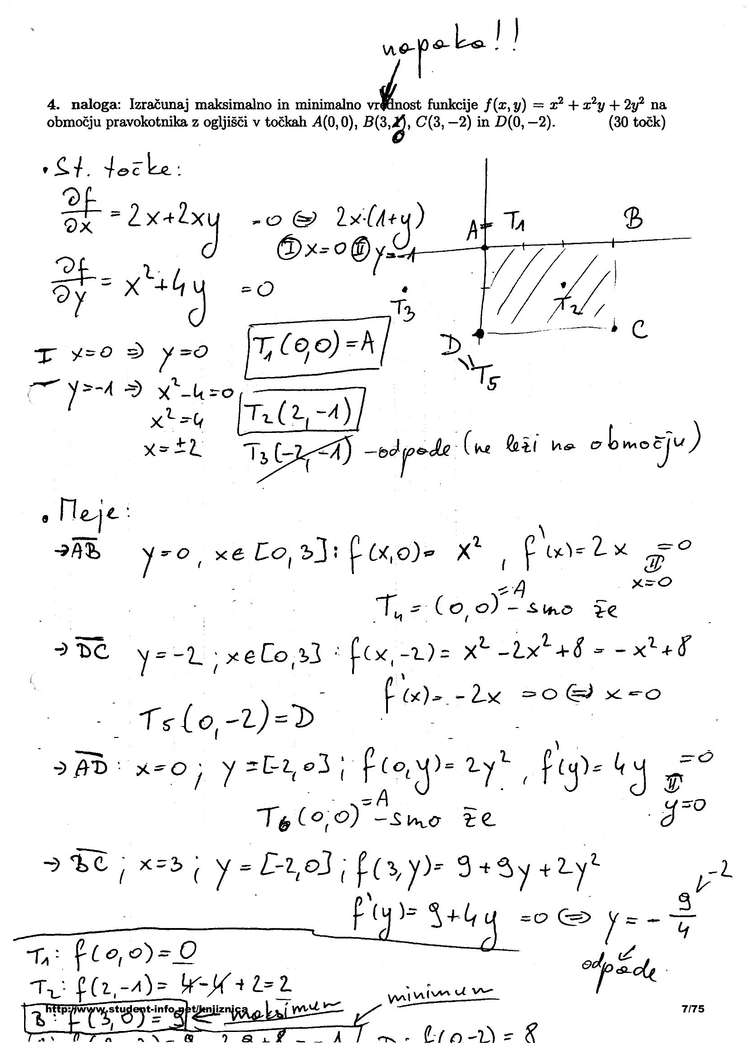 napaka!!
4. naloga: Izračunaj maksimalno in minimalno vrednost funkcije f(x, y) = x² + x²y + 2y² na
območju pravokotnika z ogljišči v točkah A(0,0), B(3, 0), C(3, −2) in D(0, −2). (30 točk)
• St. točke:
∂f/∂x = 2x+2xy = 0 ⇔ 2x·(1+y)
Ⓘ x=0 Ⓘ︎Ⓘ y=-1
∂f/∂y = x²+4y = 0
A T₁ B
T₃ T₂
D C
T₅
I x=0 ⇒ y=0 T₁(0,0)=A
y=-1 ⇒ x²-4=0
x²=4 T₂(2,-1)
x=±2 T₃(-2,-1) - odpade (ne leži na območju)
• Meje:
→ AB y=0, x∈[0,3]: f(x,0)= x², f'(x)=2x =0
x=0
T₄=(0,0)=A - smo že
→ DC y=-2; x∈[0,3]: f(x,-2)= x²-2x²+8 = -x²+8
f'(x)= -2x =0 ⇔ x=0
T₅(0,-2)=D
→ AD: x=0; y=[-2,0]; f(0,y)=2y², f'(y)=4y =0
y=0
T₆(0,0)=A - smo že
→ BC; x=3; y=[-2,0]; f(3,y)= 9+9y+2y²
f'(y)= 9+4y =0 ⇔ y= -9/4 -2
odpade
T₁: f(0,0)=0
T₂: f(2,-1)= 4-4+2=2
B: f(3,0)=9 ← maksimum minimum
http://www.student-info.net/knjiznica 7/75
f(0,-2)=8